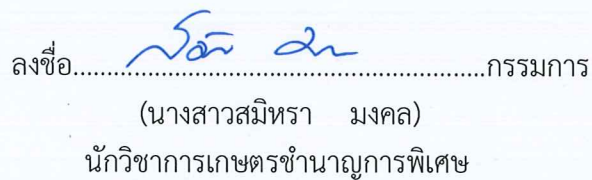 ลงชื่อ..........................................................กรรมการ
(นางสาวสมิหรา มงคล)
นักวิชาการเกษตรชำนาญการพิเศษ